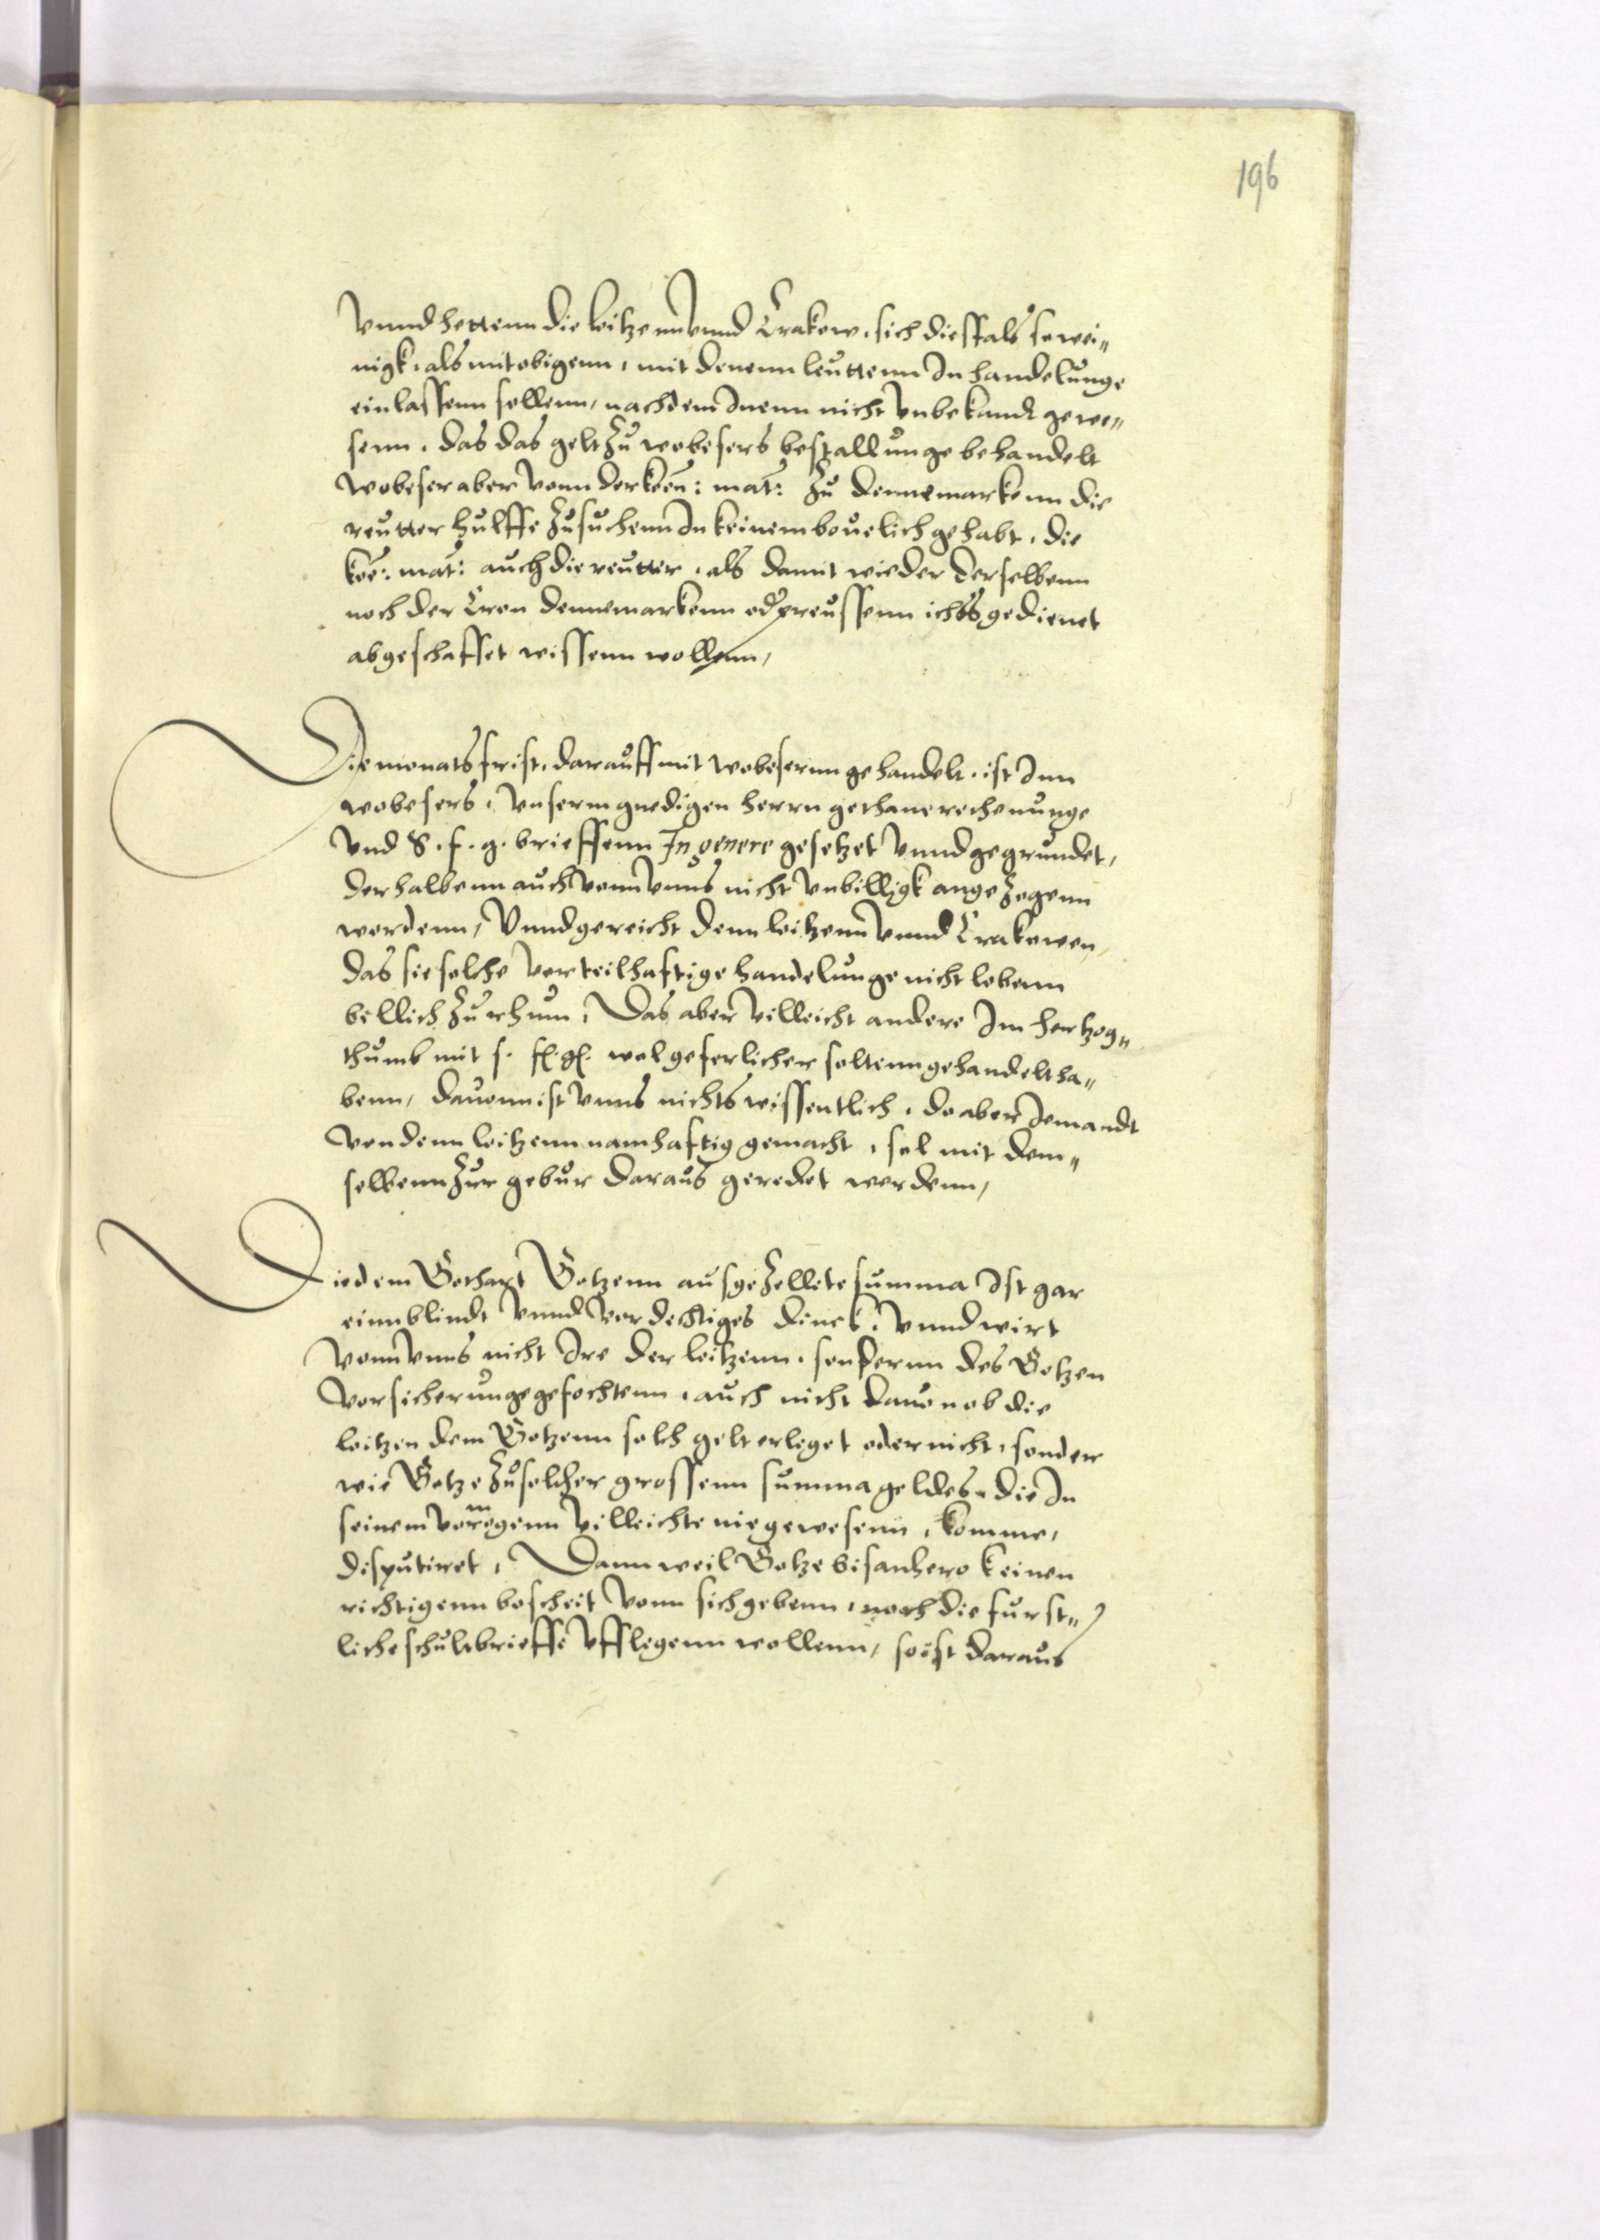 196
Vnnd hettenn die loitzenn vnnd Crakow, sich diesfals so wei„
nigk, als mit obigenn, mit denenn leuttenn In handelunge
einlassenn sollenn, nachdem Inenn nicht vnbekandt gewe„
senn, das das gelt zu wobesers bestallunge behandelt
wobeser aber vonn der koen: mat: zu dennemarkenn die
reutter hulffe zusuchenn In keinem bouelich gehabt, die
koe: mat: auch die reutter, als damit wieder derselbenn
noch der Cron dennemarkenn od preussenn ichts gedienet
abgeschaffet wissenn wollenn,
Die monats frist, darauff mit wobesernn gehandelt, ist Inn
wobesers, vnserm gnedigen herrn gethane rechenunge
vnd S. f. g. brieffenn In genere gesetzet vnnd gegrundet,
derhalbenn auch vonn vnns nicht vnbilligk angezogenn
wordenn, Vnnd gereicht denn loitzenn vnnd Crakowen,
das sie solche vorteilhaftige handelunge nicht lobenn
billich zu rhum, Das aber villeicht andere Im hertzog„
thumb mit s. f. g. wol geferlicher soltenn gehandelt ha„
benn, dauonn ist vnns nichts wissentlich, do aber Jemandt
von denn loitzenn namhaftig gemacht, sol mit dem„
selbenn zur gebur daraus geredet werdenn,
Die dem Gerhart Gotzenn ausgezellete summa Ist gar
einn blindt vnnd verdechtiges dinck, vnnd wirt
vonn vnns nicht Ire der loitzenn, sondernn des Gotzen
vorsicherunge gefochtenn, auch nicht dauon ob die
loitzen dem Gotzenn solch gelt erleget oder nicht, sonder
wie Gotze zu solcher grossenn summa geldes, die In
seinem vormogenn villeichte nie gewesenn, komme,
disputiret, Dann weil Gotze bisanhero keinen
richtigenn bescheit vonn sich gebenn, noch die furst„
liche schultbrieffe vfflegenn wollenn, so ist daraus